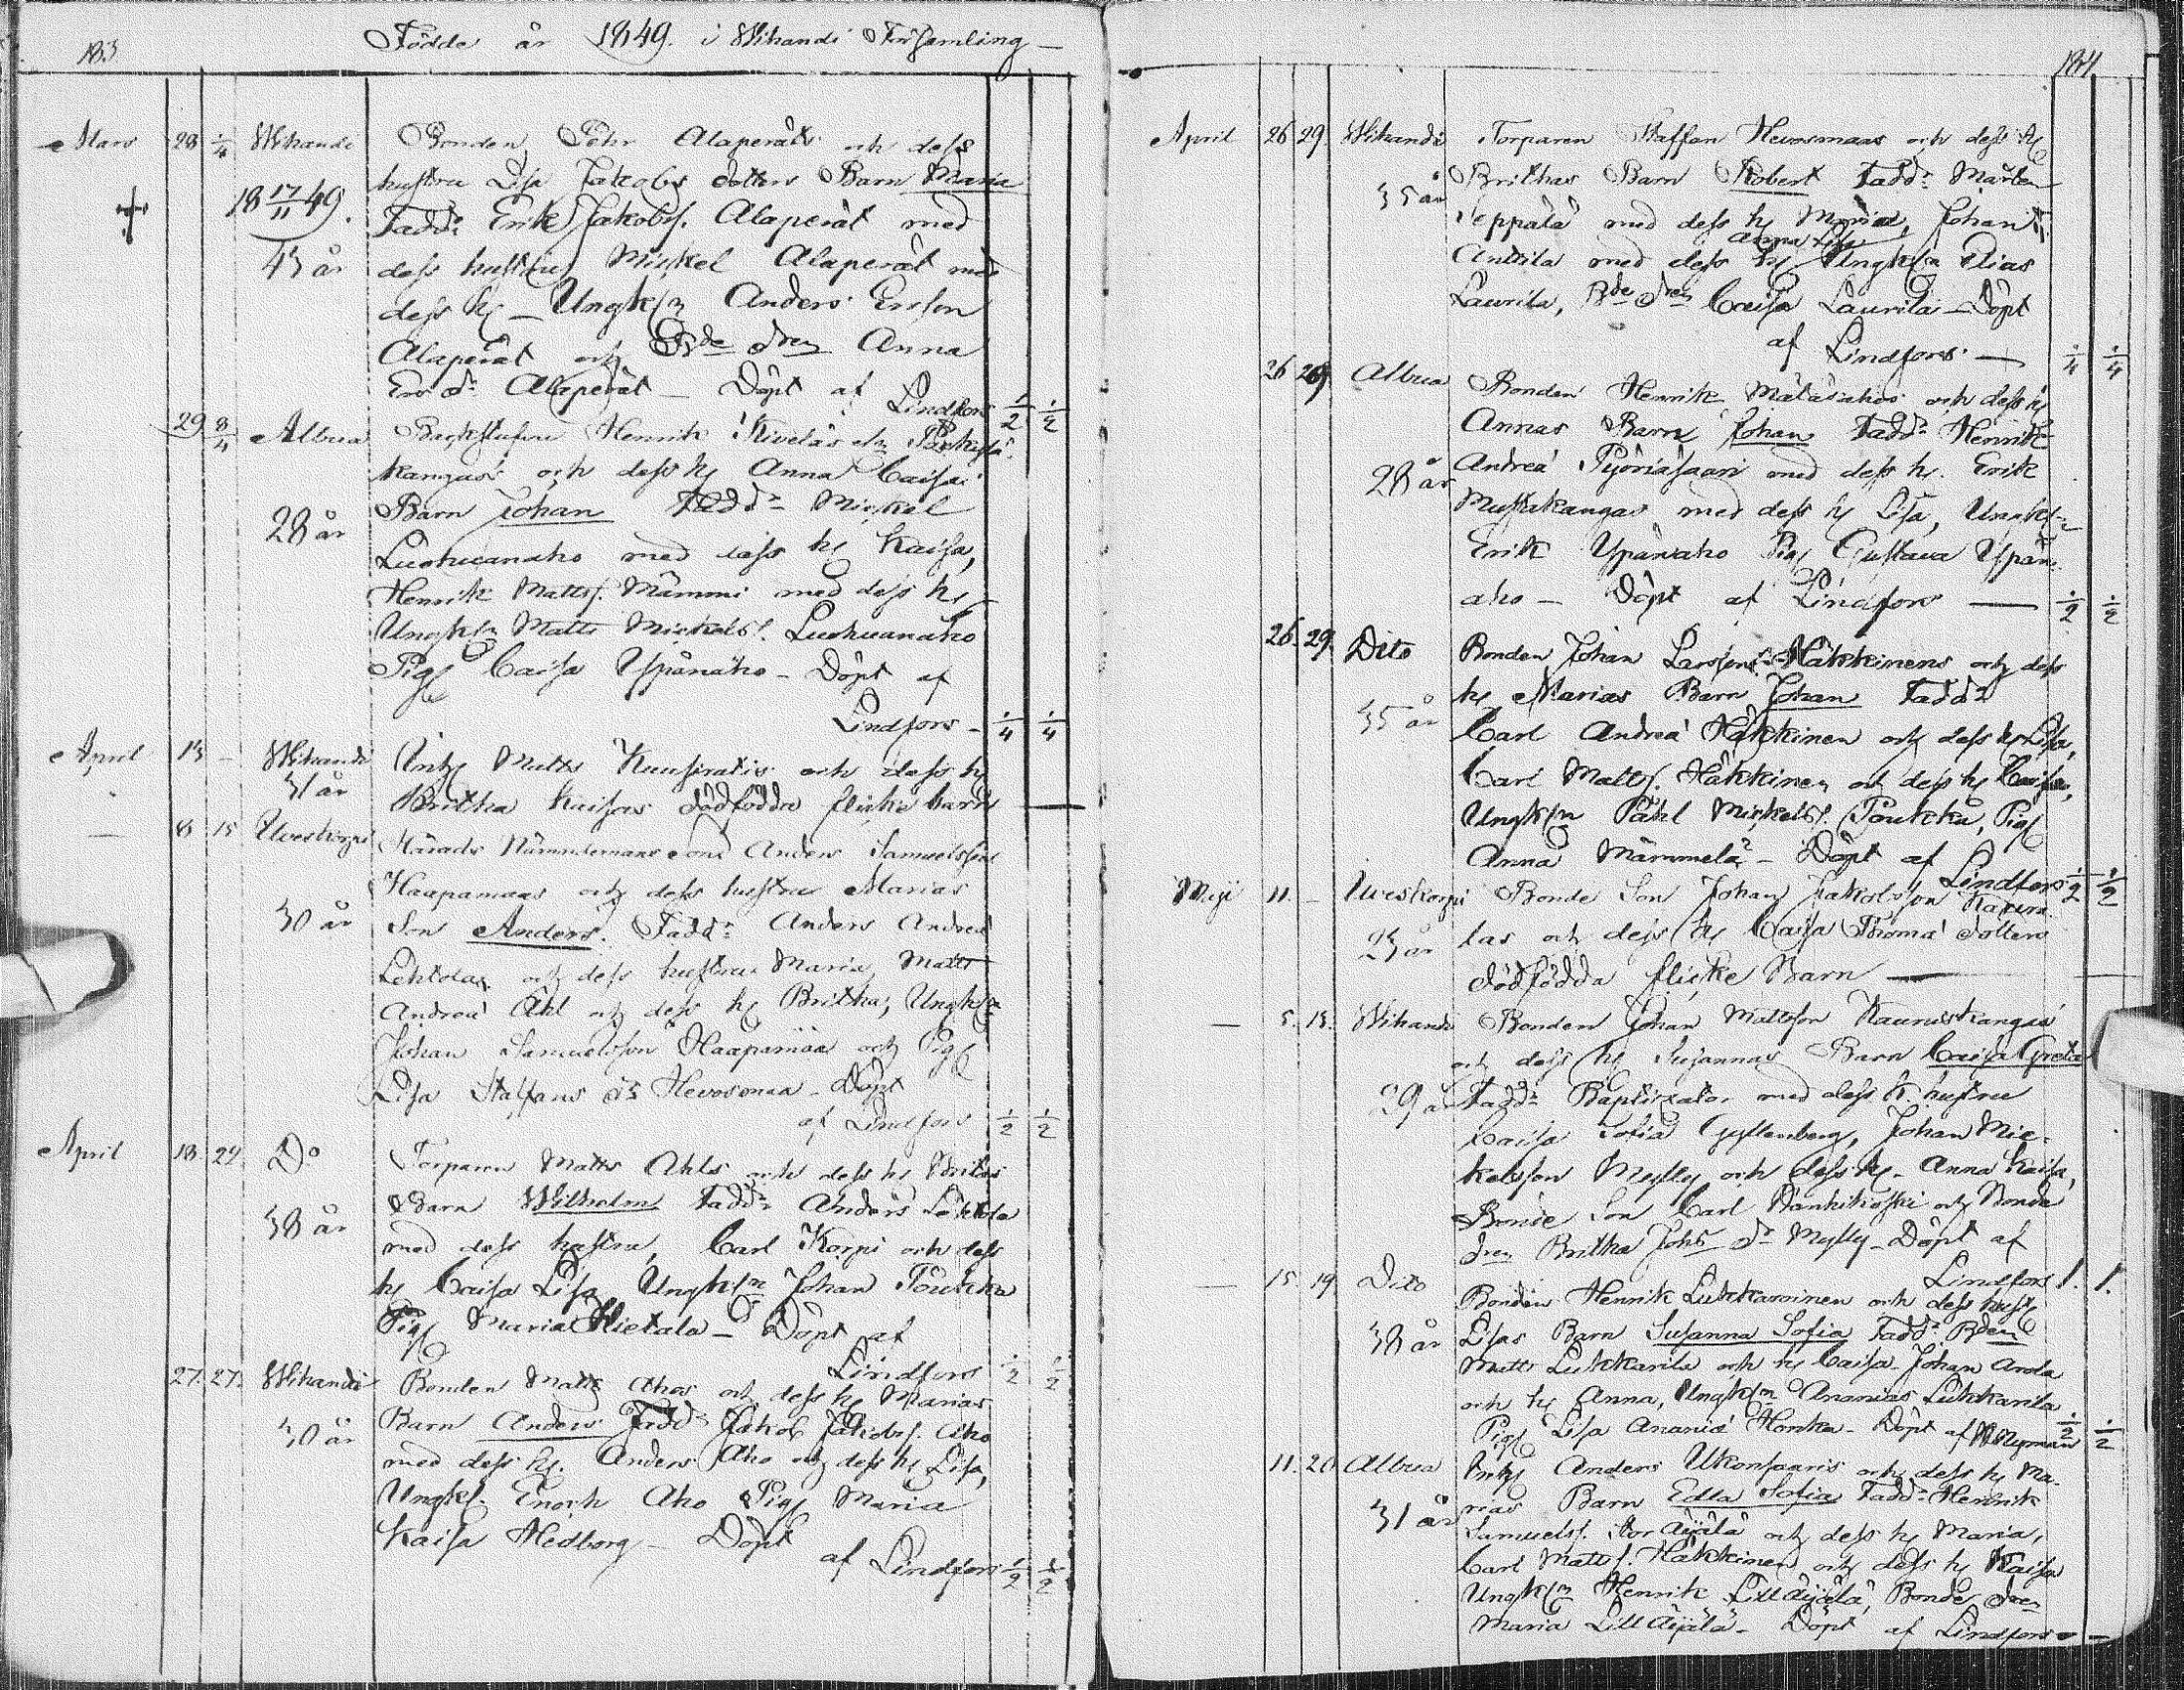 183
Födde år 1849. i Wihandi Församling
Mars 28 1/4 Wihandi Bonden Pehr Alaperäts och dess
hustru Lisa Jakobs dotters Barn Maria
18 17/11 49. Fadd: Erik Jakobss. Alaperät med
43 år dess hustru, Mickel Alaperät med
dess h, Ungk:n Anders Ersson
Alaperät och Bde dren Anna
Ers dr Alaperät Döpt af Lindfors 1/2 1/2
29 8/4 Albua Henrik Kiveläs
kangas och dess h Anna Caisas
Barn Johan Fadd: Mickel
28 år Luohuanaho med dess h Kaisa,
Henrik Matts. Mämmi med dess h
Ungk:n Matts Mickelss. Luohuanaho
Pig Caisa Ypänaho - Döpt af
Lindfors - 1/4 1/4
April 13 - Wihandi Matts Kuusiratis och dess h
31 år Britha Kaisas dödfödda flicke barn
- 8 15 Uveskorpi Härads Nämndemans sons Anders Samuelsson
Haapamaas och dess hustru Marias
30 år Son Anders. Fadd: Anders Andreä
Lehtola och dess hustru Maria, Matts
Andreä Ahl och dess h Britha, Ungk:n
Johan Samuelsson Haapamaa och Pig
Lisa Staffans dr Hevosmaa - Döpt
af Lindfors 1/2 1/2
April 18 22 Do Torparen Matts Ahls och dess h Britas
Barn Wilhelm Fadd: Anders Lehtola
38 år med dess hustru, Carl Korpi och dess
h Caisa Lisa Ungk:n Johan Poukka
Pig Maria Hietala - Döpt af
Lindfors 1/2 1/2
27. 27. Wihandi Bonden Matts Ahos och dess h Marias
30 år Barn Anders Fadd: Jakob Jakobss. Aho
med dess h. Anders Aho och dess h Lisa,
Ungk. Enoch Aho Pig Maria
Kaisa Hedborg - Döpt
af Lindfors 1/2 1/2
184
April 26 29. Wihandi Torparen Staffan Hevosmaas och dess h
Brithas Barn Robert Fadd: Mårten
35 år Seppälä med dess h Maria, Johan
Anna Lisa
Anttila med dess h Ungk:n Elias
Laurila, Bde dren Caisa Laurila - Döpt
af Lindfors. - 1/4 1/4
26 29 Albua Bonden Henrik Mätäsahos och dess h
Annas Barn Johan Fadd: Henrik
28 år Andreä Pyöriäsaari med dess h. Erik
Mustakangas med dess h Lisa, Ungk:n
Erik Ypänaho Pig Gustava Ypän
aho - Döpt af Lindfors - 1/2 1/2
26. 29. Dito Bonden Johan Larssons Häkkinens och dess
h Marias Barn Johan Fadd:
35 år Carl Andreä Häkkinen och dess h Lisa,
Carl Matts. Häkkinen och dess h Caisa,
Ungk:n Påhl Mickelss. Poukka, Pig
Anna Mämmelä - Döpt af Lindfors 1/2 1/2
Maji 11. - Uveskorpi Bonde Son Johan Jakobsson
23 år las och dess h Caisa Thoma dotters
dödfödda flicke Barn
- 5. 13. Wihandi Bonden Johan Mattsson Kauniskangas
och dess h Susannas Barn Caisa Greta
29 år Fadd: Baptizator med dess k. hustru
Caisa Sofia Gyllenberg, Johan Mic-
kelsson Mylly och dess h. Anna Kaisa,
Bonde Son Carl och Bonde
dren Britha Johs dr Mylly - Döpt af
Lindfors 1. 1.
- 15. 19. Dito Bonden Henrik Lukkaroinen och dess hust
38 år Lisas Barn Susanna Sofia Fadd: Bden
Matts Lukkarila och h Caisa. Johan Arola
och h Anna, Ungk:n Ananias Lukkarila
Pig Lisa Ananiä Honka - Döpt af Nyman 1/2 1/2
11. 20 Albua Anders Ukonsaaris och dess h Ma-
rias Barn Edla Sofia Fadd: Henrik
31 år Samuelss. Stor Äijälä och dess h Maria,
Carl Matts. Häkkinen och dess h Kaisa
Ungk:n Henrik Lill Äijälä, Bonde dren
Maria Lill Äijälä - Döpt af Lindfors -